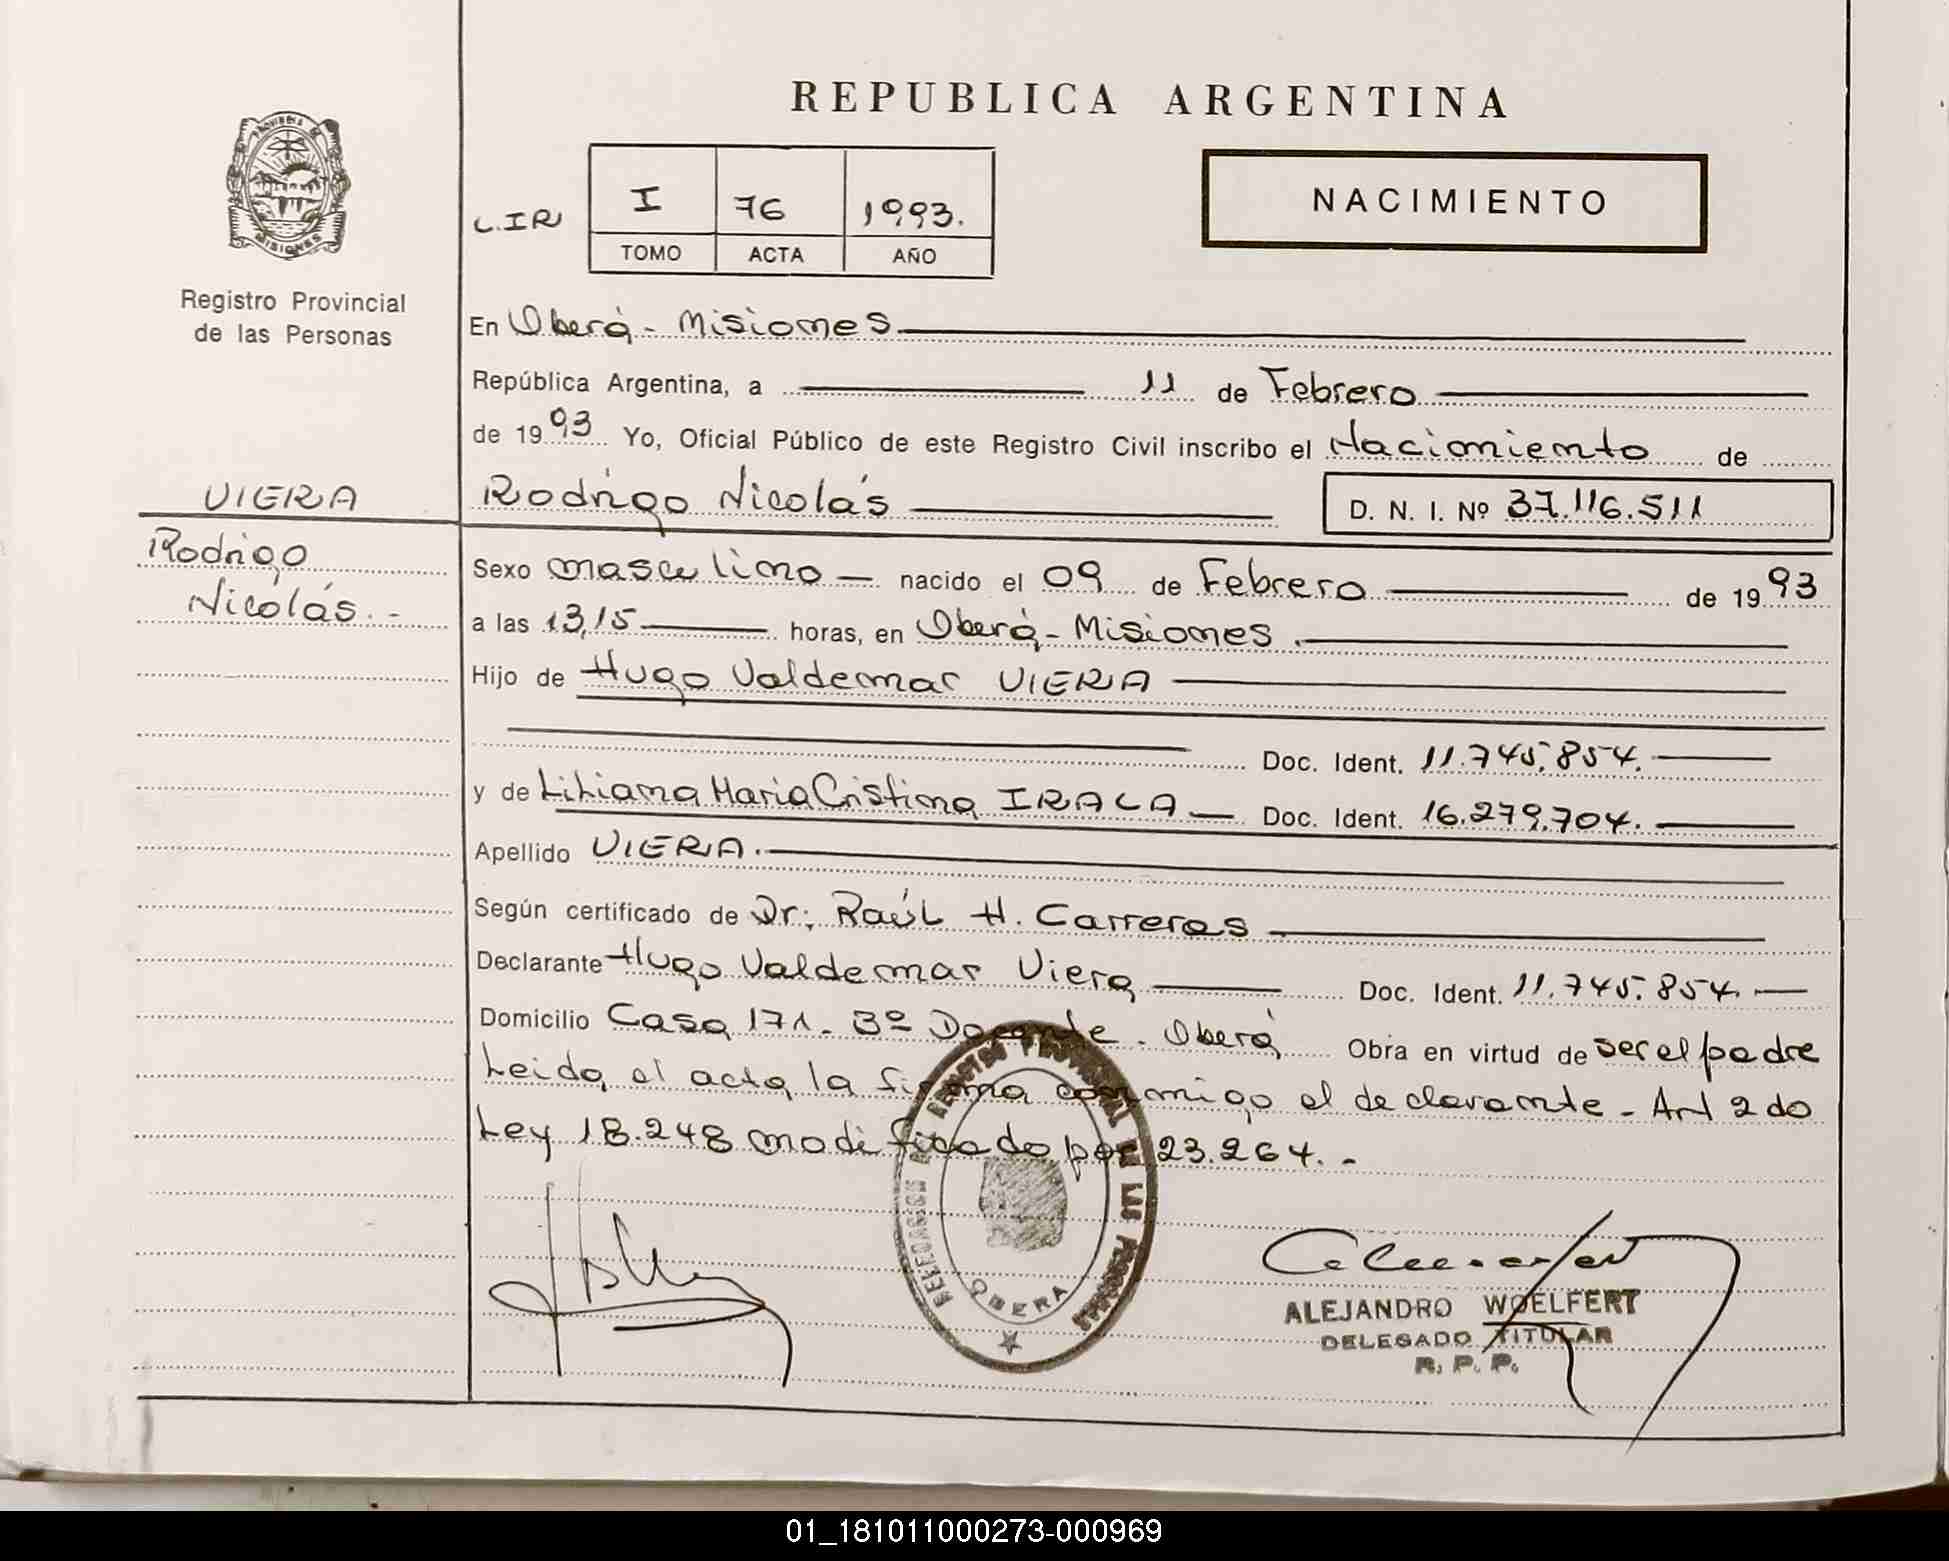 REPUBLICA ARGENTINA
PROVINCIA DE
MISIONES
Registro Provincial
de las Personas
L.IR
I 76 1993.
TOMO ACTA AÑO
NACIMIENTO
En Oberá - Misiones
República Argentina, a 11 de Febrero
de 1993 Yo, Oficial Público de este Registro Civil inscribo el Nacimiento de
VIERA
Rodrigo Nicolás
Rodrigo Nicolás D. N. I. Nº 37.116.511
Sexo masculino nacido el 09 de Febrero de 1993
a las 13,15 horas, en Oberá - Misiones.
Hijo de Hugo Valdemar VIERA
Doc. Ident. 11.745.854.
y de Liliana Maria Cristina IRALA Doc. Ident. 16.279.704.
Apellido VIERA.
Según certificado de Dr: Raúl H. Carreras
Declarante Hugo Valdemar Viera Doc. Ident. 11.745.854.
Domicilio Casa 171 - 3º Docente. Oberá Obra en virtud de ser el padre
Leida el acta la firma conmigo el declarante - Art 2do
Ley 18.248 modificado por 23.264. -
DELEGACION DEL REGISTRO PROVINCIAL DE LAS PERSONAS
OBERA
ALEJANDRO WOELFERT
DELEGADO TITULAR
R. P. P.
01_181011000273-000969